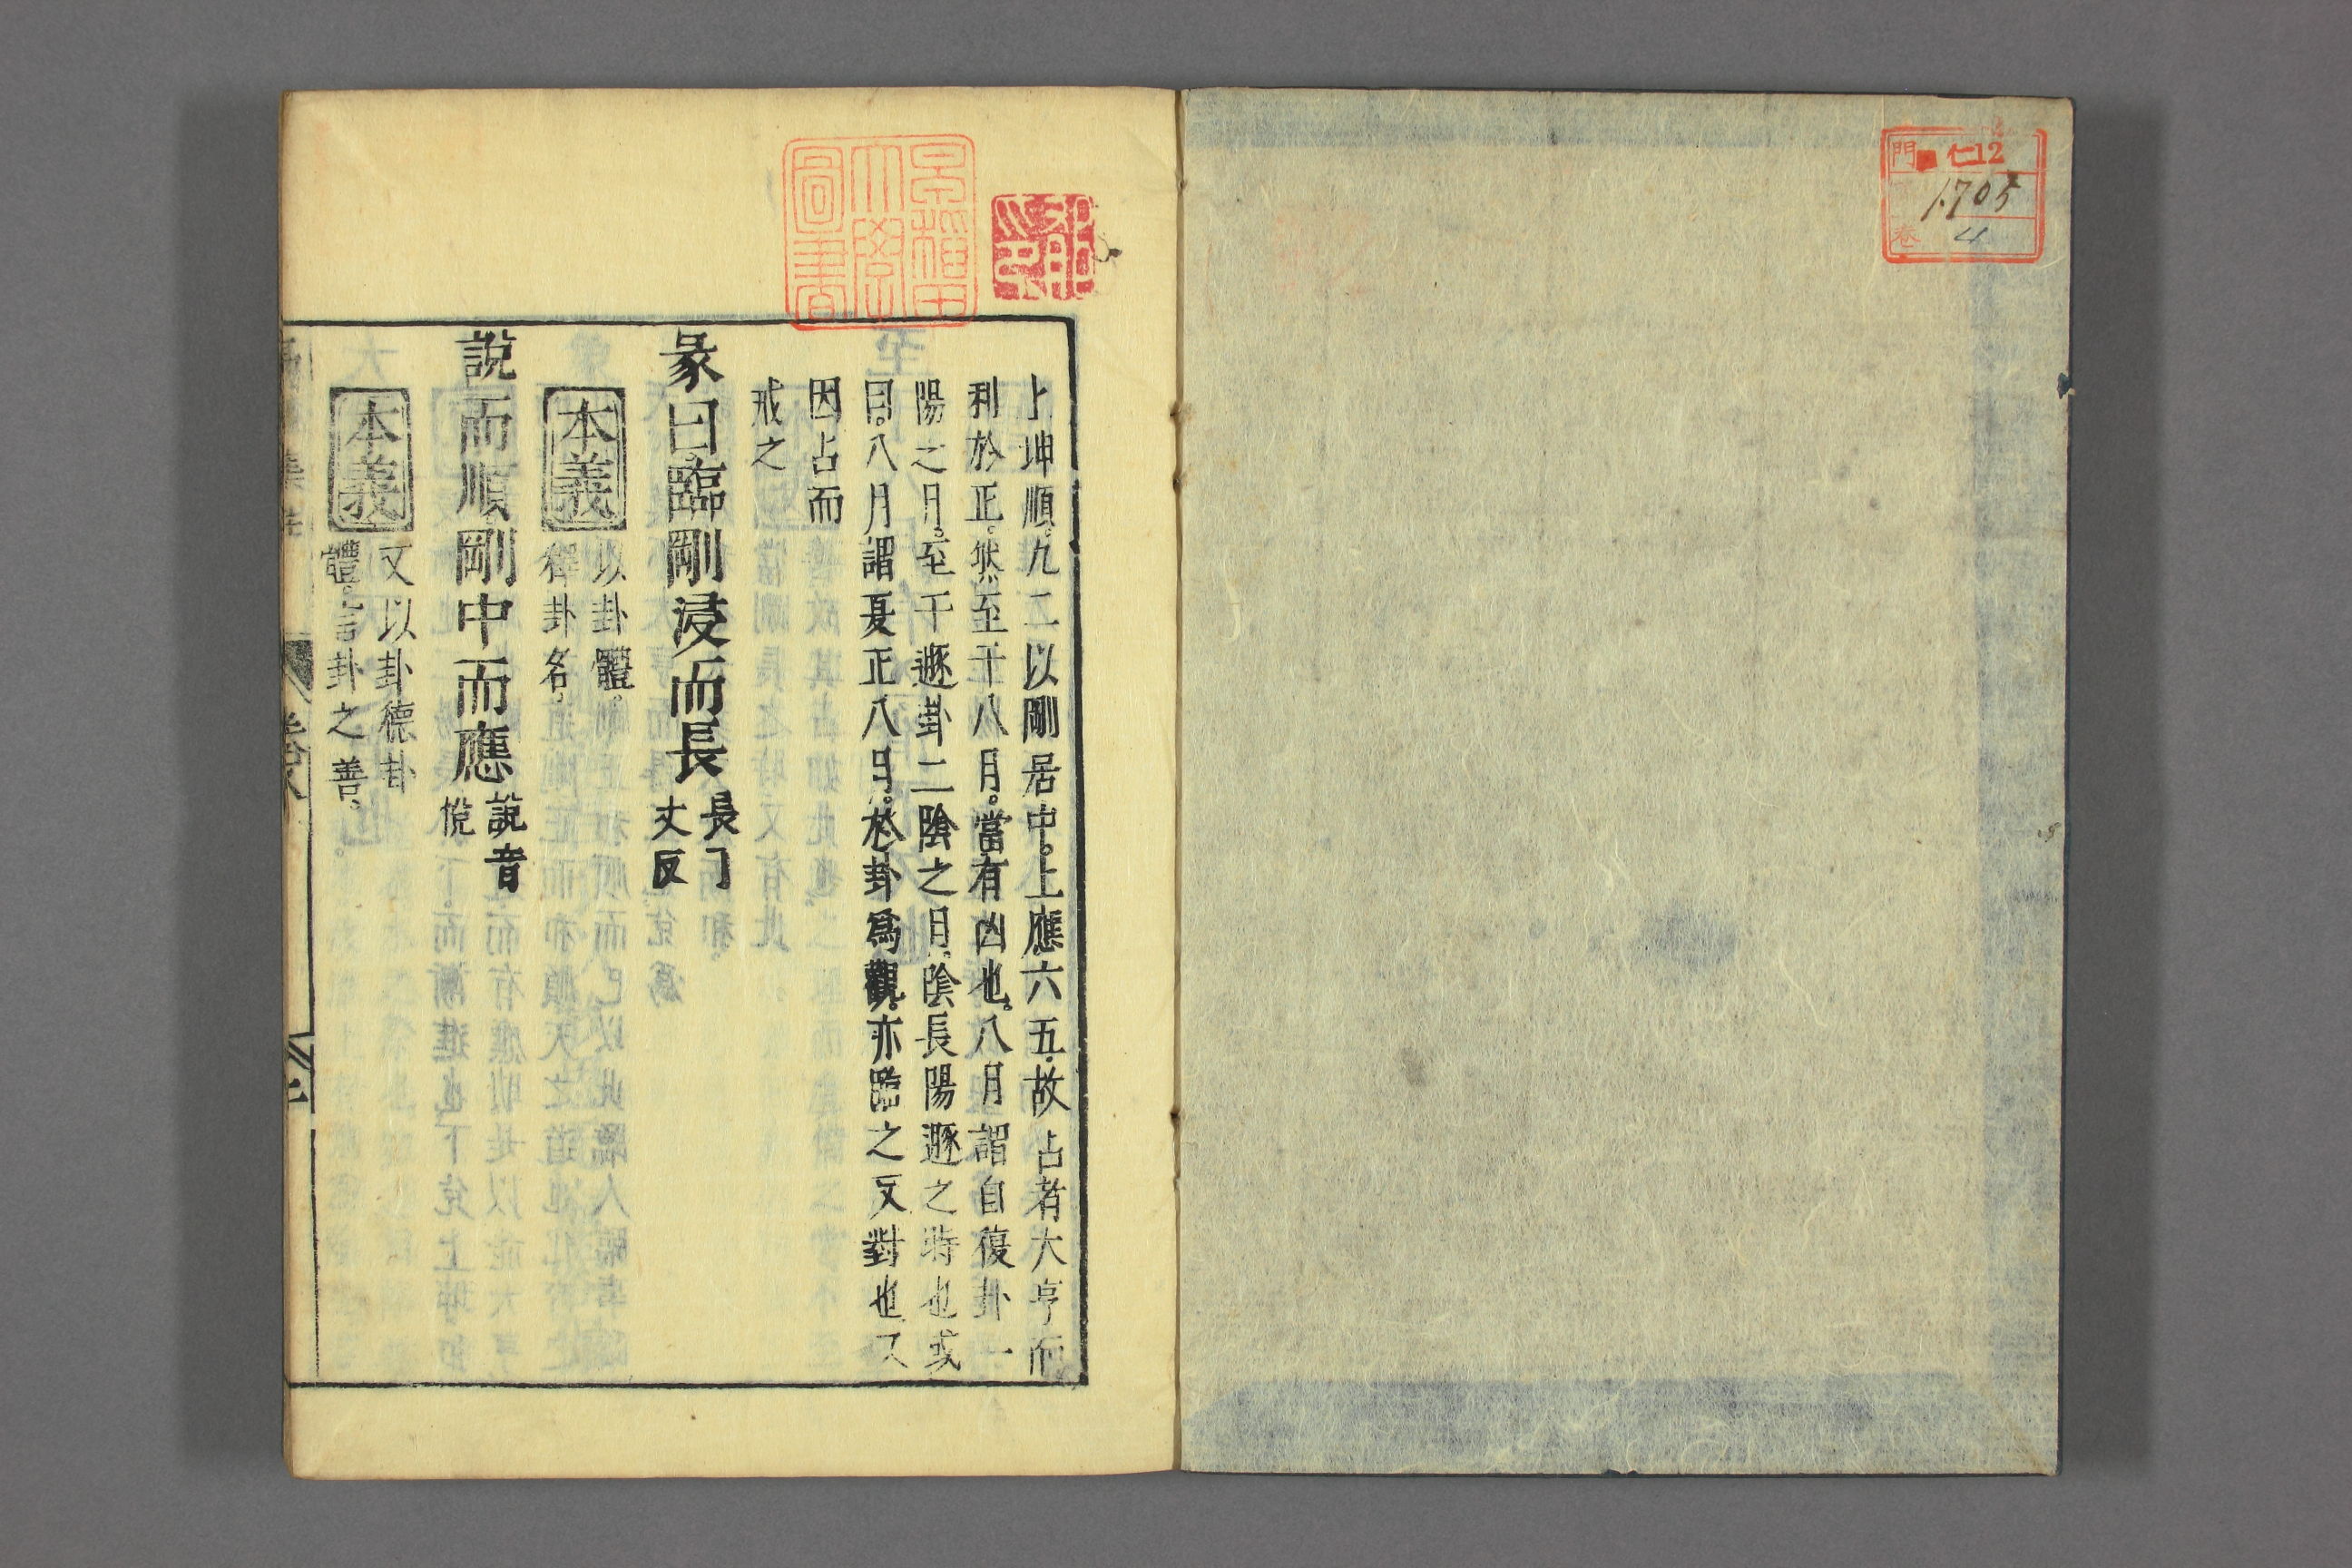 門 仁12
1705
卷 4
早稲田大學圖書
上坤順。九二以剛居中。上應六五。故占者大亨而
利於正。然至于八月。當有凶也。八月謂自復卦一
陽之月。至于遯卦二陰之月。陰長陽遯之時也或
曰。八月謂夏正八月。於卦爲觀。亦臨之反對也又
因占而
戒之
彖曰。臨剛浸而長
長丁
丈反
本義
以卦體。
釋卦名。
說而順剛中而應
說音
悅
本義
又以卦德卦
體。言卦之善。